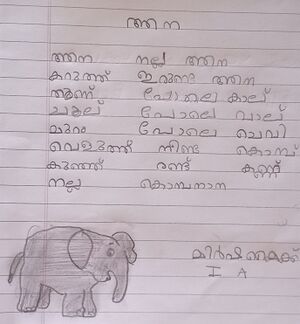 ആന
ആന നല്ല ആന
കറുത്ത് ഇരുണ്ട ആന
തൂണ് പോലെ കാല്
ചൂല് പോലെ വാല്
മുറം പോലെ ചെവി
വെളുത്ത് നീണ്ട കൊമ്പ്
കുഞ്ഞ് രണ്ട് കണ്ണ്
നല്ല കൊമ്പനാന
I A